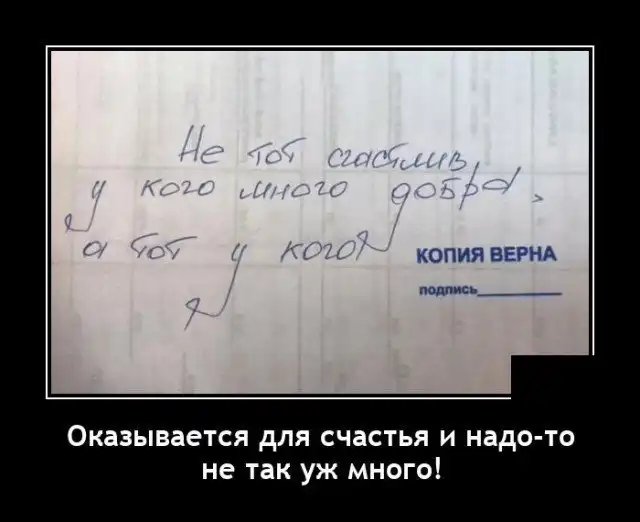 Не тот счастлив,
у кого много добра,
а тот у кого
КОПИЯ ВЕРНА
подпись
Оказывается для счастья и надо-то
не так уж много!